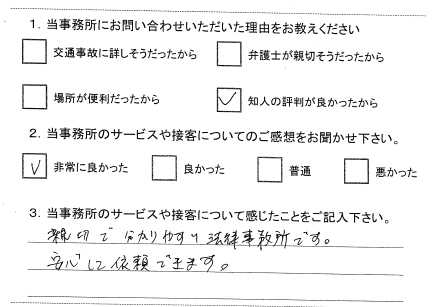 1. 当事務所にお問い合わせいただいた理由をお教えください
交通事故に詳しそうだったから 弁護士が親切そうだったから
場所が便利だったから ✓ 知人の評判が良かったから
2. 当事務所のサービスや接客についてのご感想をお聞かせ下さい。
✓ 非常に良かった 良かった 普通 悪かった
3. 当事務所のサービスや接客について感じたことをご記入下さい。
親切で分かりやすい法律事務所です。
安心して依頼できます。